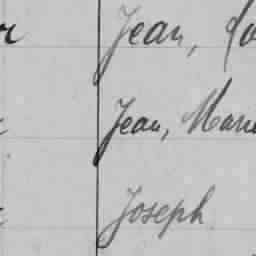 Jean,
Jean, Marie
Joseph